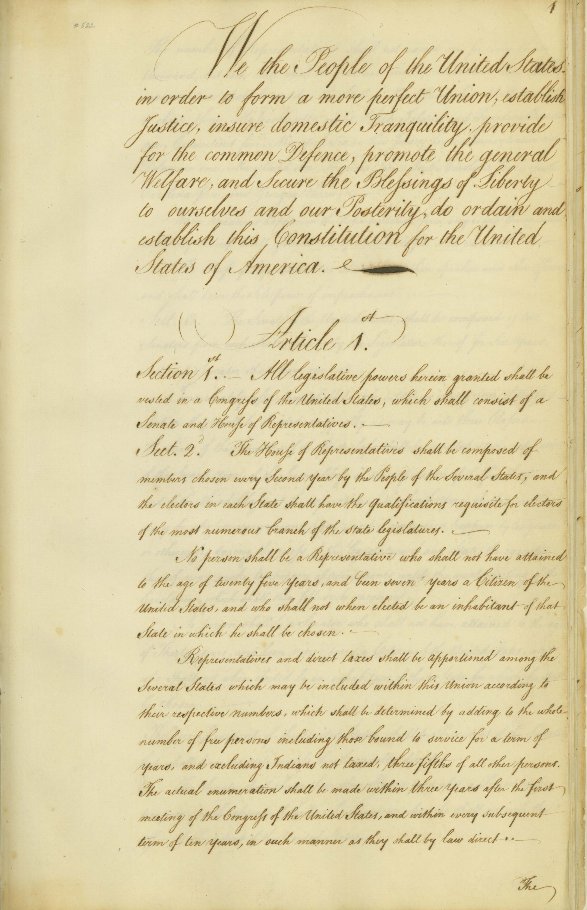 1
We the People of the United States.
in order to form a more perfect Union, establish
Justice, insure domestic Tranquility, provide
for the common Defence, promote the general
Welfare, and Secure the Blessings of Liberty
to ourselves and our Posterity, do ordain and
establish this Constitution for the United
States of America.
Article 1.st
Section 1.st All legislative powers herein granted shall be
vested in a Congress of the United States, which shall consist of a
Senate and House of Representatives.
Sect. 2.d The House of Representatives shall be composed of
members chosen every Second year by the People of the Several States, and
the electors in each State shall have the Qualifications requisite for electors
of the most numerous branch of the state legislatures.
No person shall be a Representative who shall not have attained
to the age of twenty five years, and been seven years a Citizen of the
United States, and who shall not when elected be an inhabitant of that
State in which he shall be chosen.
Representatives and direct taxes shall be apportioned among the
Several States which may be included within this Union according to
their respective numbers, which shall be determined by adding to the whole
number of free persons including those bound to service for a term of
years, and excluding Indians not taxed, three fifths of all other persons.
The actual enumeration shall be made within three years after the first
meeting of the Congress of the United States, and within every subsequent
term of ten years, in such manner as they shall by law direct.
The